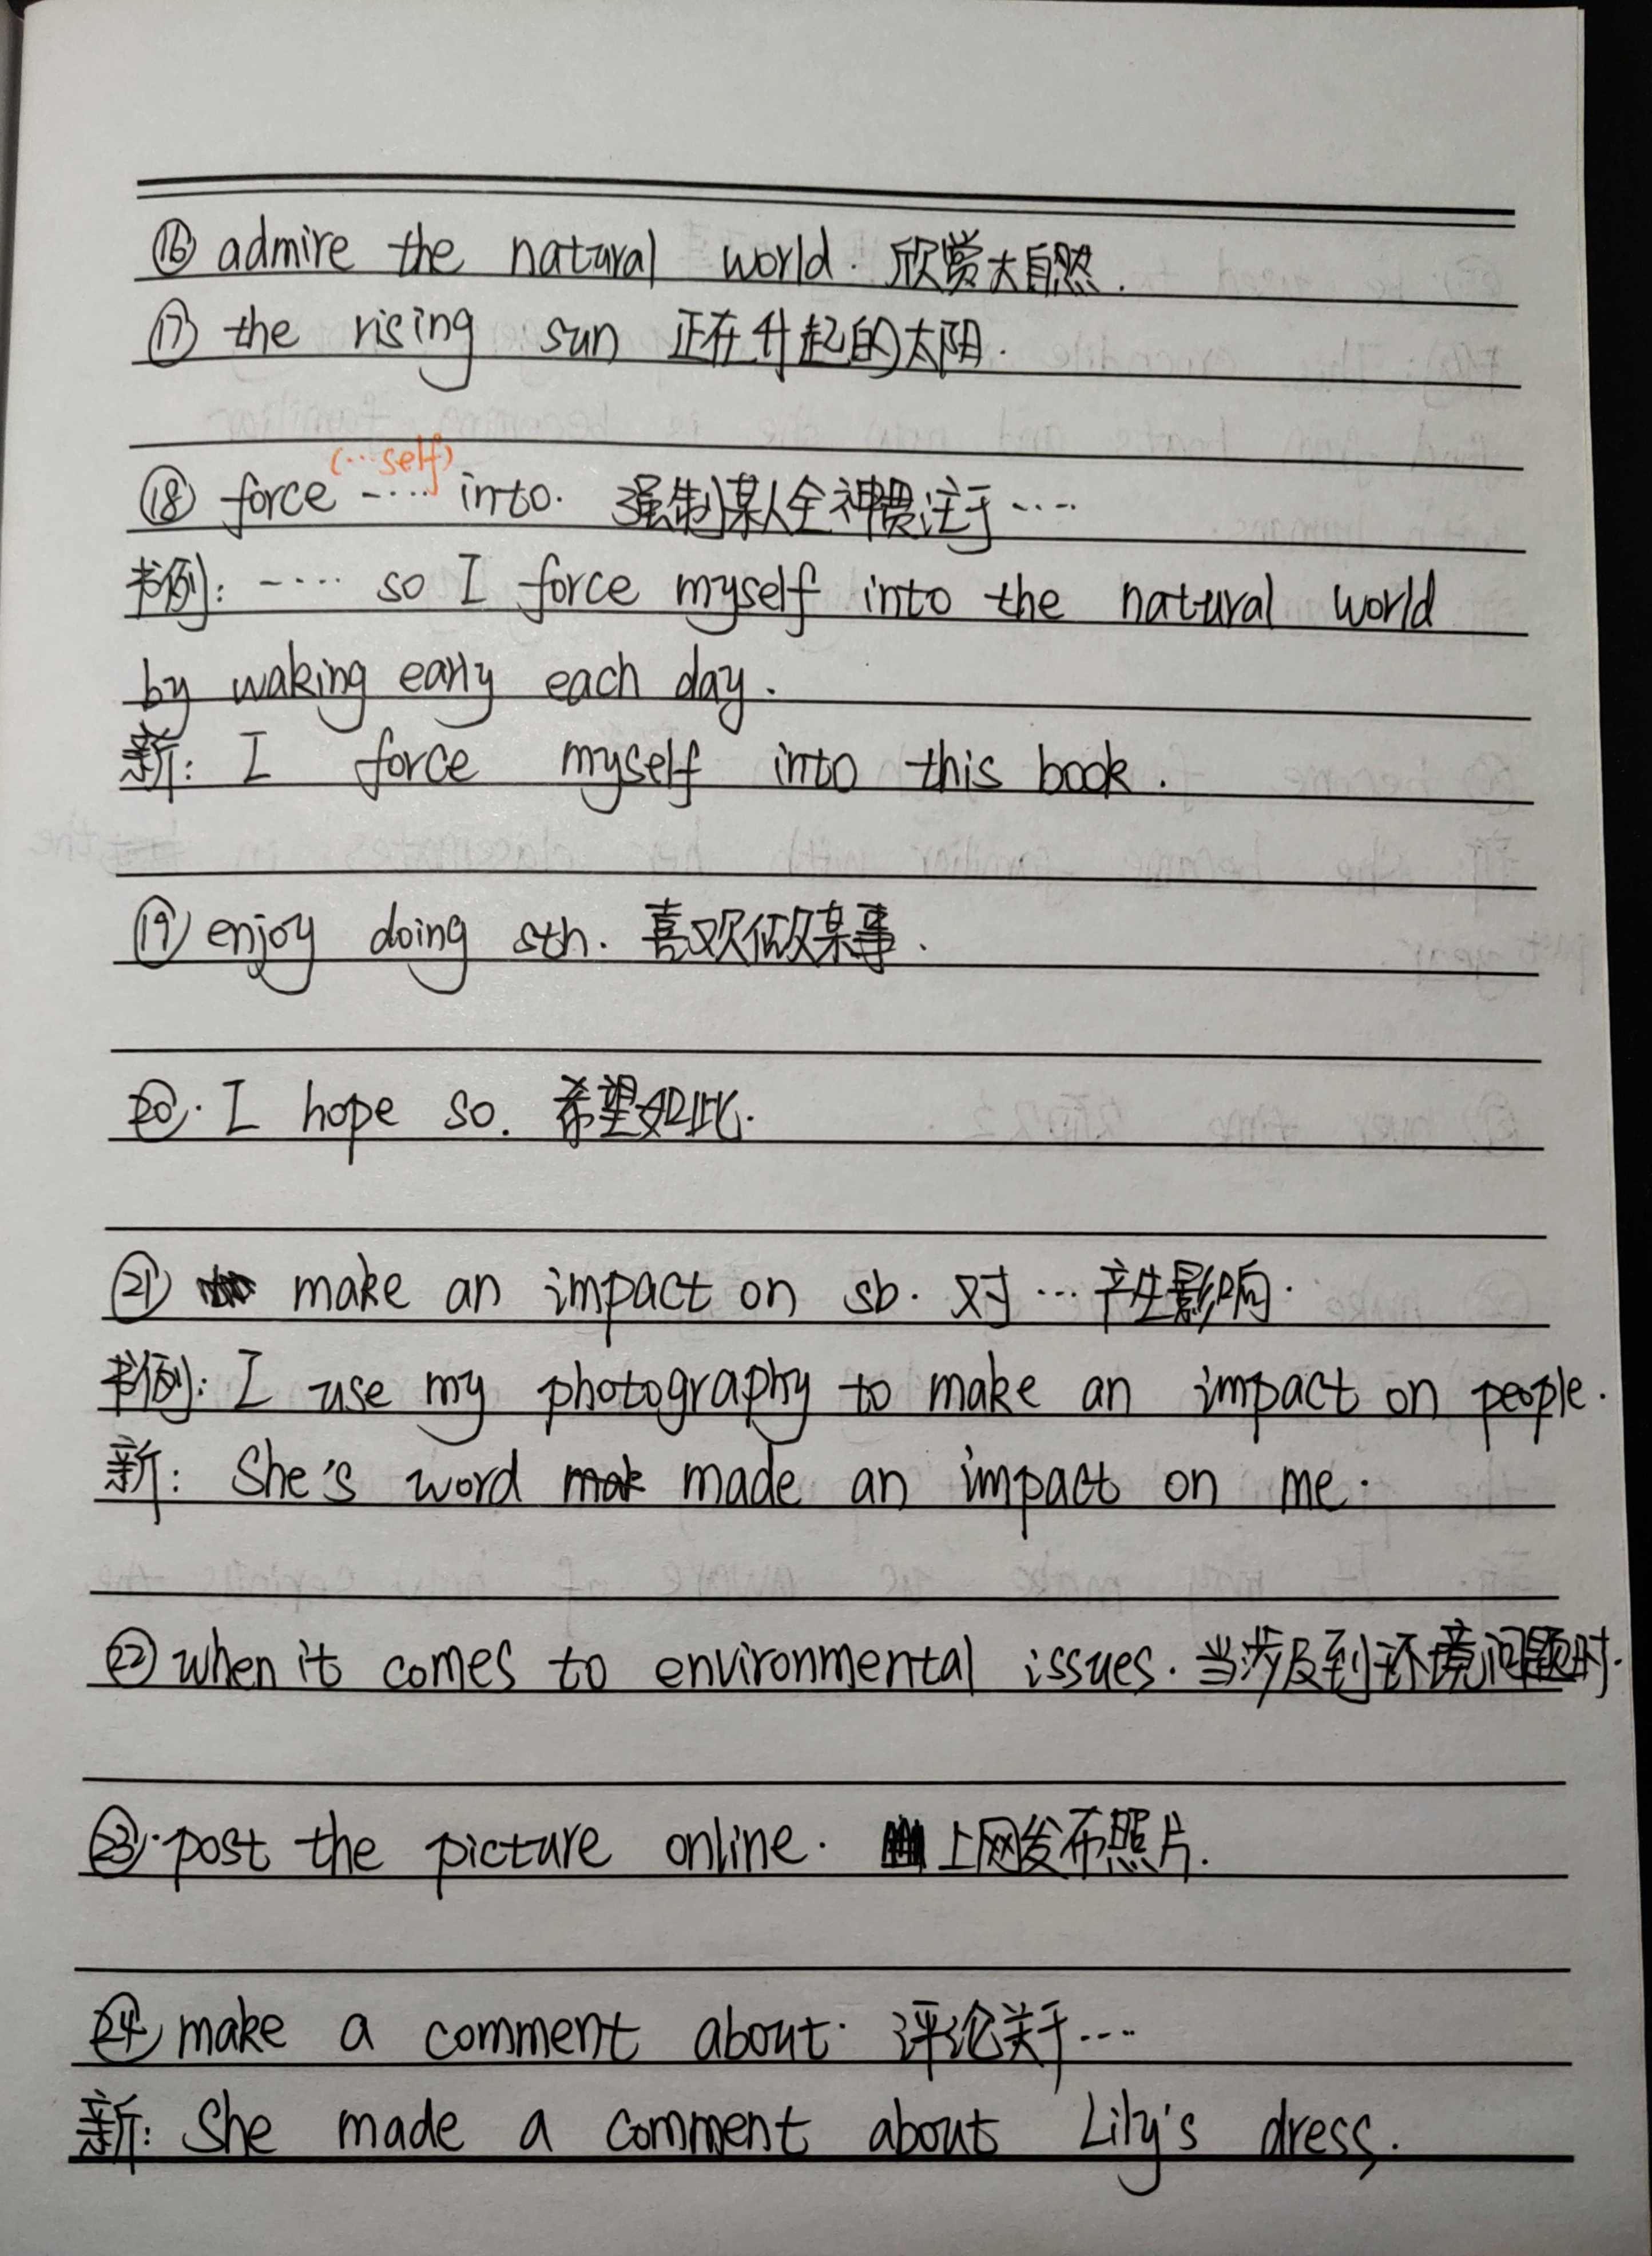 ⑯ admire the natural world. 欣赏大自然.
⑰ the rising sun 正在升起的太阳.
(...self)
⑱ force ..... into. 强制某人全神贯注于....
书例: ..... so I force myself into the natural world
by waking early each day.
新: I force myself into this book.
⑲ enjoy doing sth. 喜欢做某事.
⑳. I hope so. 希望如此.
㉑ make an impact on sb. 对...产生影响.
书例: I use my photography to make an impact on people.
新: She's word made an impact on me.
㉒ when it comes to environmental issues. 当涉及到环境问题时.
㉓. post the picture online. 上网发布照片.
㉔ make a comment about. 评论关于....
新: She made a comment about Lily's dress.